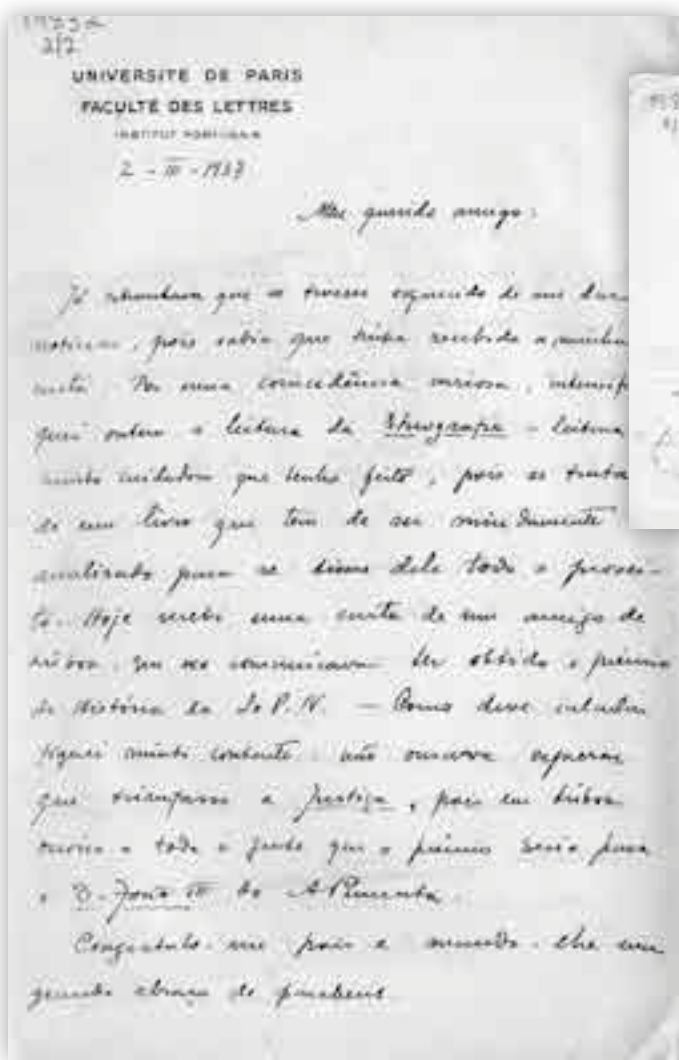 2/7
UNIVERSITÉ DE PARIS
FACULTÉ DES LETTRES
INSTITUT PORTUGAIS
2 - III - 1937
Meu querido amigo:
Já estranhava que se tivesse esquecido de me dar
notícias, pois sabia que tinha recebido a minha
carta. Por uma coincidência curiosa,
quei ontem a leitura da Etnografia – leitura
muito cuidadosa que tenho feito, pois se trata
de um livro que tem de ser miudamente
analizado para se tirar dele todo o provei-
to. Hoje recebi uma carta de um amigo de
Lisboa que me comunicava ter obtido o prémio
de História do S.P.N. — Como deve calcular
fiquei muito contente: não ousava esperar
que triunfasse a Justiça, pois em Lisboa
ouvira a toda a gente que o prémio seria para
o D. João III do A. Pimenta.
Congratulo-me pois e mando-lhe um
grande abraço de parabens